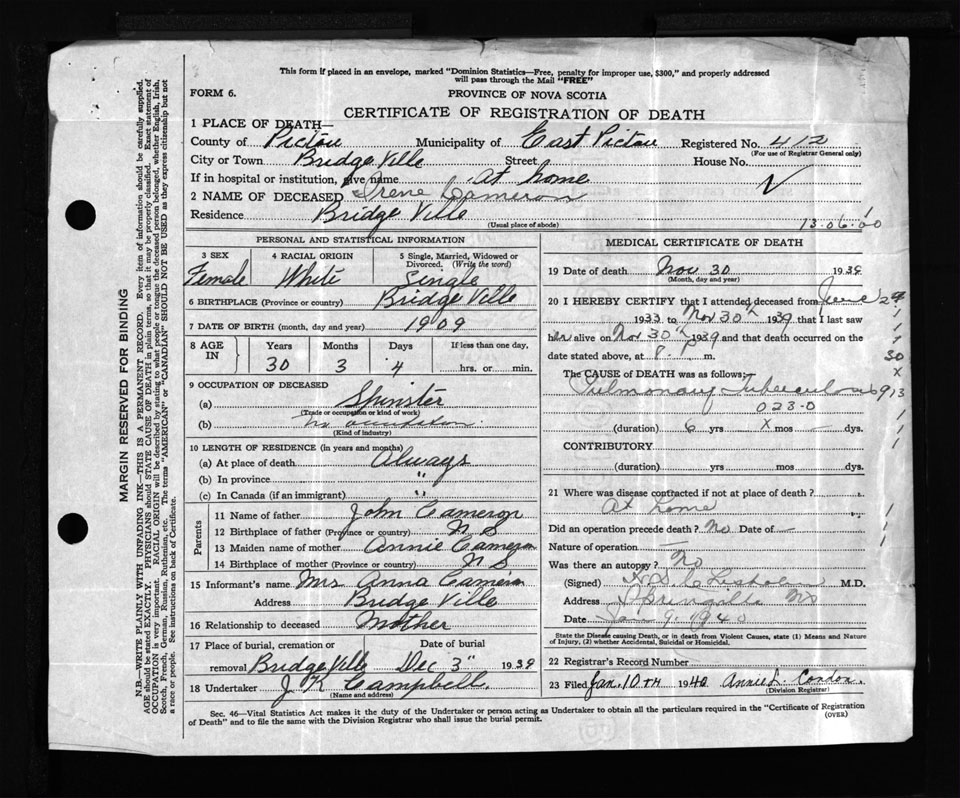 This form if placed in an envelope, marked "Dominion Statistics—Free, penalty for improper use, $300," and properly addressed
will pass through the Mail "FREE"
FORM 6.
PROVINCE OF NOVA SCOTIA
CERTIFICATE OF REGISTRATION OF DEATH
1 PLACE OF DEATH—
County of Pictou Municipality of East Pictou Registered No. 412
(For use of Registrar General only)
City or Town Bridge Ville Street House No.
If in hospital or institution, give name at home
2 NAME OF DECEASED Irene Cameron
Residence Bridge Ville
(Usual place of abode)
13.06.00
PERSONAL AND STATISTICAL INFORMATION
3 SEX 4 RACIAL ORIGIN 5 Single, Married, Widowed or Divorced. (Write the word)
Female White Single
6 BIRTHPLACE (Province or country) Bridge Ville
7 DATE OF BIRTH (month, day and year) 1909
8 AGE IN Years Months Days If less than one day,
30 3 4 hrs. or min.
9 OCCUPATION OF DECEASED
(a) Spinster
(Trade or occupation or kind of work)
(b) No
(Kind of industry)
10 LENGTH OF RESIDENCE (in years and months)
(a) At place of death Always
(b) In province "
(c) In Canada (if an immigrant) "
Parents
11 Name of father John Cameron
12 Birthplace of father (Province or country) N S
13 Maiden name of mother Annie Cameron
14 Birthplace of mother (Province or country) N S
15 Informant's name Mrs Anna Cameron
Address Bridge Ville
16 Relationship to deceased Mother
17 Place of burial, cremation or removal Date of burial
Bridge Ville Dec 3" 1939
18 Undertaker J K Campbell.
(Name and address)
MEDICAL CERTIFICATE OF DEATH
19 Date of death Nov 30 1939
(Month, day and year)
20 I HEREBY CERTIFY that I attended deceased from June 29
1933 to Nov 30th 1939 that I last saw
her alive on Nov 30th 1939 and that death occurred on the
date stated above, at 8 P m.
The CAUSE OF DEATH was as follows:
Pulmonary Tuberculosis
023-0
(duration) 6 yrs X mos — dys.
CONTRIBUTORY
(duration) yrs. mos. dys.
21 Where was disease contracted if not at place of death?
At home
Did an operation precede death? No Date of —
Nature of operation —
Was there an autopsy? No
(Signed) Chisholm M.D.
Address Springville NS
Date Jan 9. 1940
State the Disease causing Death, or in death from Violent Causes, state (1) Means and Nature
of Injury, (2) whether Accidental, Suicidal or Homicidal.
22 Registrar's Record Number
23 Filed Jan. 10TH 1940 Annie L. Condon.
(Division Registrar)
Sec. 46—Vital Statistics Act makes it the duty of the Undertaker or person acting as Undertaker to obtain all the particulars required in the "Certificate of Registration
of Death" and to file the same with the Division Registrar who shall issue the burial permit.
(OVER)
MARGIN RESERVED FOR BINDING
N.B.—WRITE PLAINLY WITH UNFADING INK—THIS IS A PERMANENT RECORD. Every item of information should be carefully supplied.
AGE should be stated EXACTLY. PHYSICIANS should STATE CAUSE OF DEATH in plain terms, so that it may be properly classified. Exact statement of
OCCUPATION is very important. RACIAL ORIGIN will be described by stating to what people or tongue the deceased person belonged, whether English, Irish,
Scotch, French, German, Russian, Ruthenian, etc. The terms "AMERICAN" or "CANADIAN" SHOULD NOT BE USED as they express citizenship but not
a race or people. See instructions on back of Certificate.